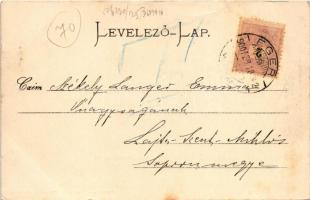 70
LEVELEZŐ-LAP.
EGER
Czim Székely Langer Emma
Nagyságának
Lajta-Szent-Miklós
Sopronmegye